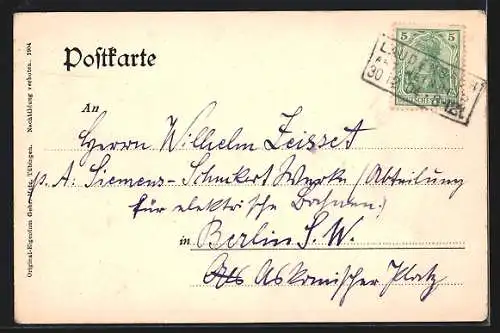 Postkarte
5 5
LAUDENBACH
30
An
Herrn Wilhelm Zeisset
p. A: Siemens-Schukert Werke (Abteilung
für elektrische Bahnen)
in Berlin S. W.
Askanischer Platz
Original-Eigentum Gebr. Metz, Tübingen. Nachbildung verboten. 1904